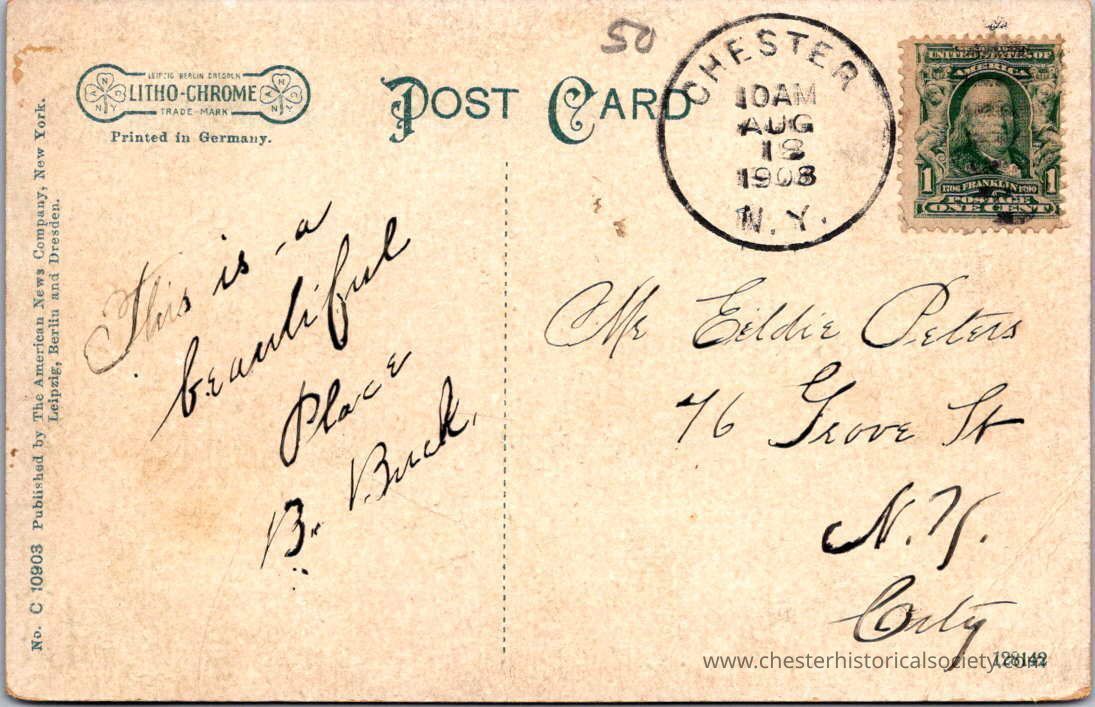 50
LEIPZIG BERLIN DRESDEN
LITHO-CHROME
TRADE-MARK
Printed in Germany.
POST CARD
CHESTER
10AM
AUG
18
1908
N.Y.
UNITED STATES OF
AMERICA
1 1706 FRANKLIN 1790 1
POSTAGE
ONE CENT
No. C 10903 Published by The American News Company, New York.
Leipzig, Berlin and Dresden.
This is a
beautiful
Place
B. Buck.
Mr Eildie Peters
76 Grove St
N.Y.
City
www.chesterhistoricalsociety.com
128142